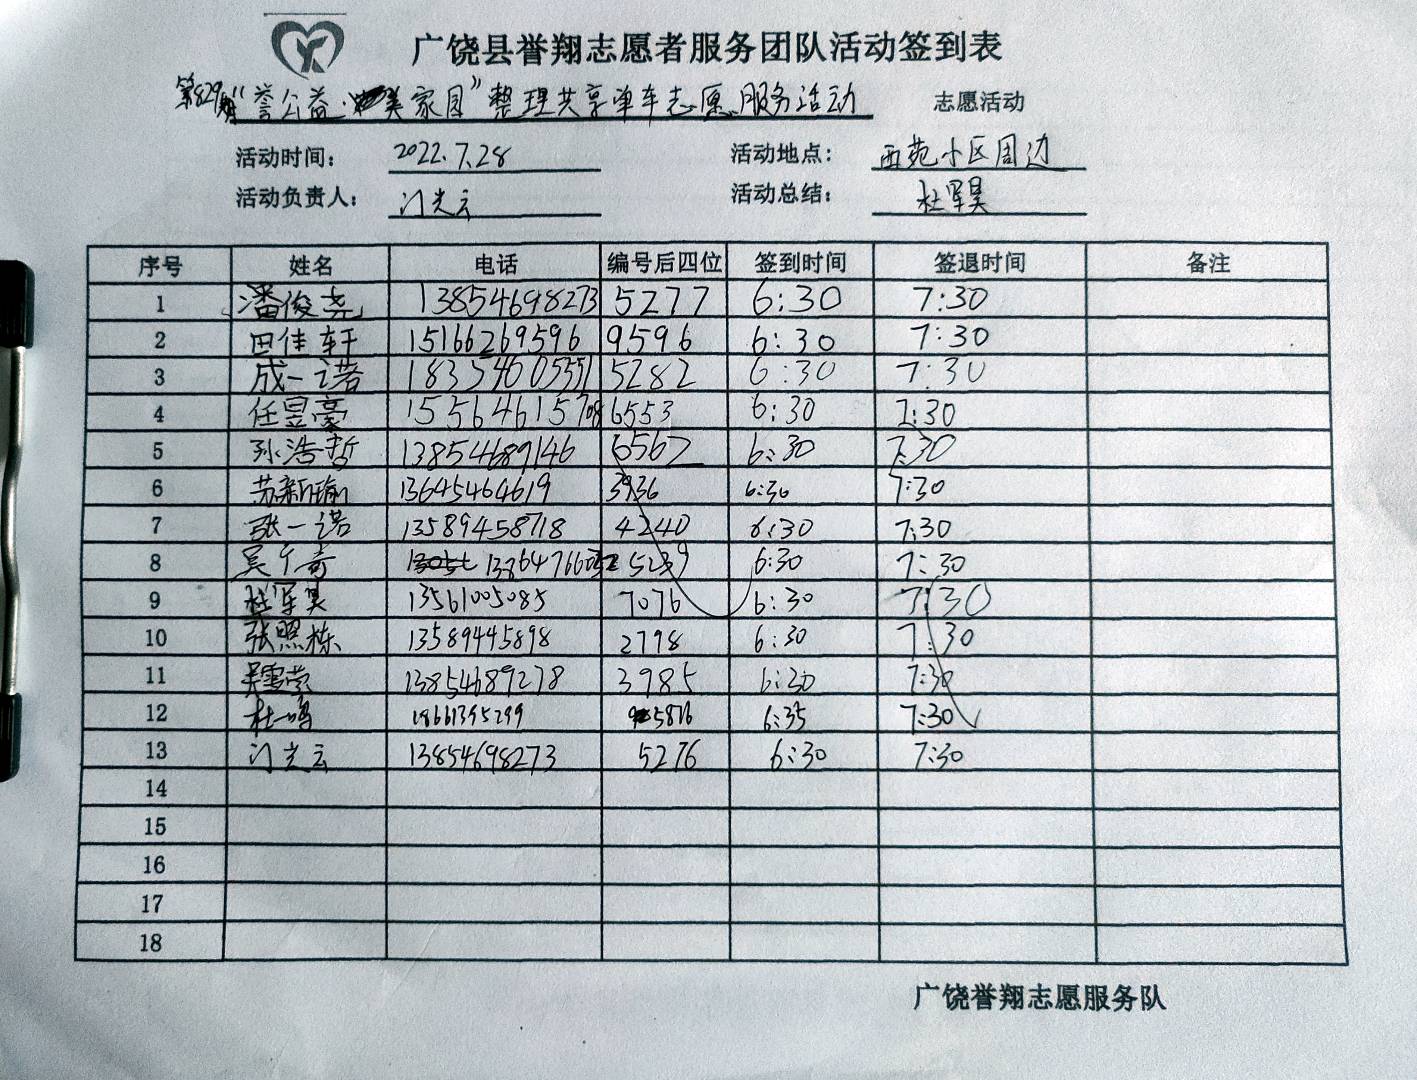 广饶县誉翔志愿者服务团队活动签到表
第829期“誉公益·美家园”整理共享单车志愿服务活动 志愿活动
活动时间: 2022.7.28 活动地点: 西苑小区周边
活动负责人: 门光云 活动总结: 杜军昊
序号 姓名 电话 编号后四位 签到时间 签退时间 备注
1 潘俊尧 13854698273 5277 6:30 7:30
2 田佳轩 15166269596 9596 6:30 7:30
3 成一诺 18354605351 5282 6:30 7:30
4 任昱豪 15564615708 6553 6:30 7:30
5 孙浩哲 13854689146 6562 6:30 7:30
6 苏新瑜 13645464619 3936 6:30 7:30
7 张一诺 13589458718 4240 6:30 7:30
8 吴千奇 5239 6:30 7:30
9 杜军昊 13561005085 7076 6:30 7:30
10 张照栋 13589445898 2798 6:30 7:30
11 吴雪莹 13854689278 3985 6:30 7:30
12 杜一鸣 18661395299 5876 6:35 7:30
13 门光云 13854698273 5276 6:30 7:30
14
15
16
17
18
广饶誉翔志愿服务队